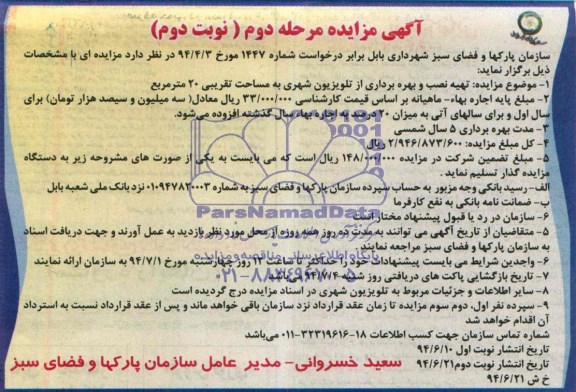 آگهی مزایده مرحله دوم ( نوبت دوم)
سازمان پارکها و فضای سبز شهرداری بابل برابر درخواست شماره ۱۴۴۷ مورخ ۹۴/۴/۳ در نظر دارد مزایده ای با مشخصات
ذیل برگزار نماید:
۱- موضوع مزایده: تهیه نصب و بهره برداری از تلویزیون شهری به مساحت تقریبی ۲۰ مترمربع
۲- مبلغ پایه اجاره بهاء- ماهیانه بر اساس قیمت کارشناسی ۳۳/۰۰۰/۰۰۰ ریال معادل( سه میلیون و سیصد هزار تومان) برای
سال اول و برای سالهای آتی به میزان ۲۰ درصد به اجاره بهاء سال گذشته افزوده می‌شود.
۳- مدت بهره برداری ۵ سال شمسی
۴- کل مبلغ مزایده: ۲/۹۴۶/۸۷۳/۶۰۰ ریال
۵- مبلغ تضمین شرکت در مزایده ۱۴۸/۰۰۰/۰۰۰ ریال است که می بایست به یکی از صورت های مشروحه زیر به دستگاه
مزایده گذار تسلیم نماید .
الف- رسید بانکی وجه مزبور به حساب سپرده سازمان پارکها و فضای سبز به شماره ۰۱۰۹۴۷۸۲۰۰۰۳ نزد بانک ملی شعبه بابل
ب- ضمانت نامه بانکی به نفع کارفرما
۶- سازمان در رد یا قبول پیشنهاد مختار است
۵- متقاضیان از تاریخ آگهی می توانند به مدت ده روز همه روزه از محل مورد نظر بازدید به عمل آورند و جهت دریافت اسناد
به سازمان پارکها و فضای سبز مراجعه نمایند.
۶- واجدین شرایط می بایست پیشنهادات خود را حداکثر تا ساعت ۱۴ روز چهارشنبه مورخ ۹۴/۷/۱ به سازمان ارائه نمایند
۷- تاریخ بازگشایی پاکت های دریافتی روز شنبه ۹۴/۷/۴ می‌باشد
۸- سایر اطلاعات و جزئیات مربوط به تلویزیون شهری در اسناد مزایده درج گردیده است
۹- سپرده نفر اول، دوم سوم مزایده تا زمان عقد قرارداد نزد سازمان باقی خواهد ماند و پس از عقد قرارداد نسبت به استرداد
آن اقدام خواهد شد
شماره تماس سازمان جهت کسب اطلاعات ۱۸-۳۲۳۱۹۶۱۶-۰۱۱ می‌باشد
تاریخ انتشار نوبت اول ۹۴/۶/۱۰
تاریخ انتشار نوبت دوم ۹۴/۶/۲۱
خ ش ۹۴/۶/۲۱
سعید خسروانی- مدیر عامل سازمان پارکها و فضای سبز
ParsNamadData
۰۲۱-۸۸۳۴۹۶۷۰-۵